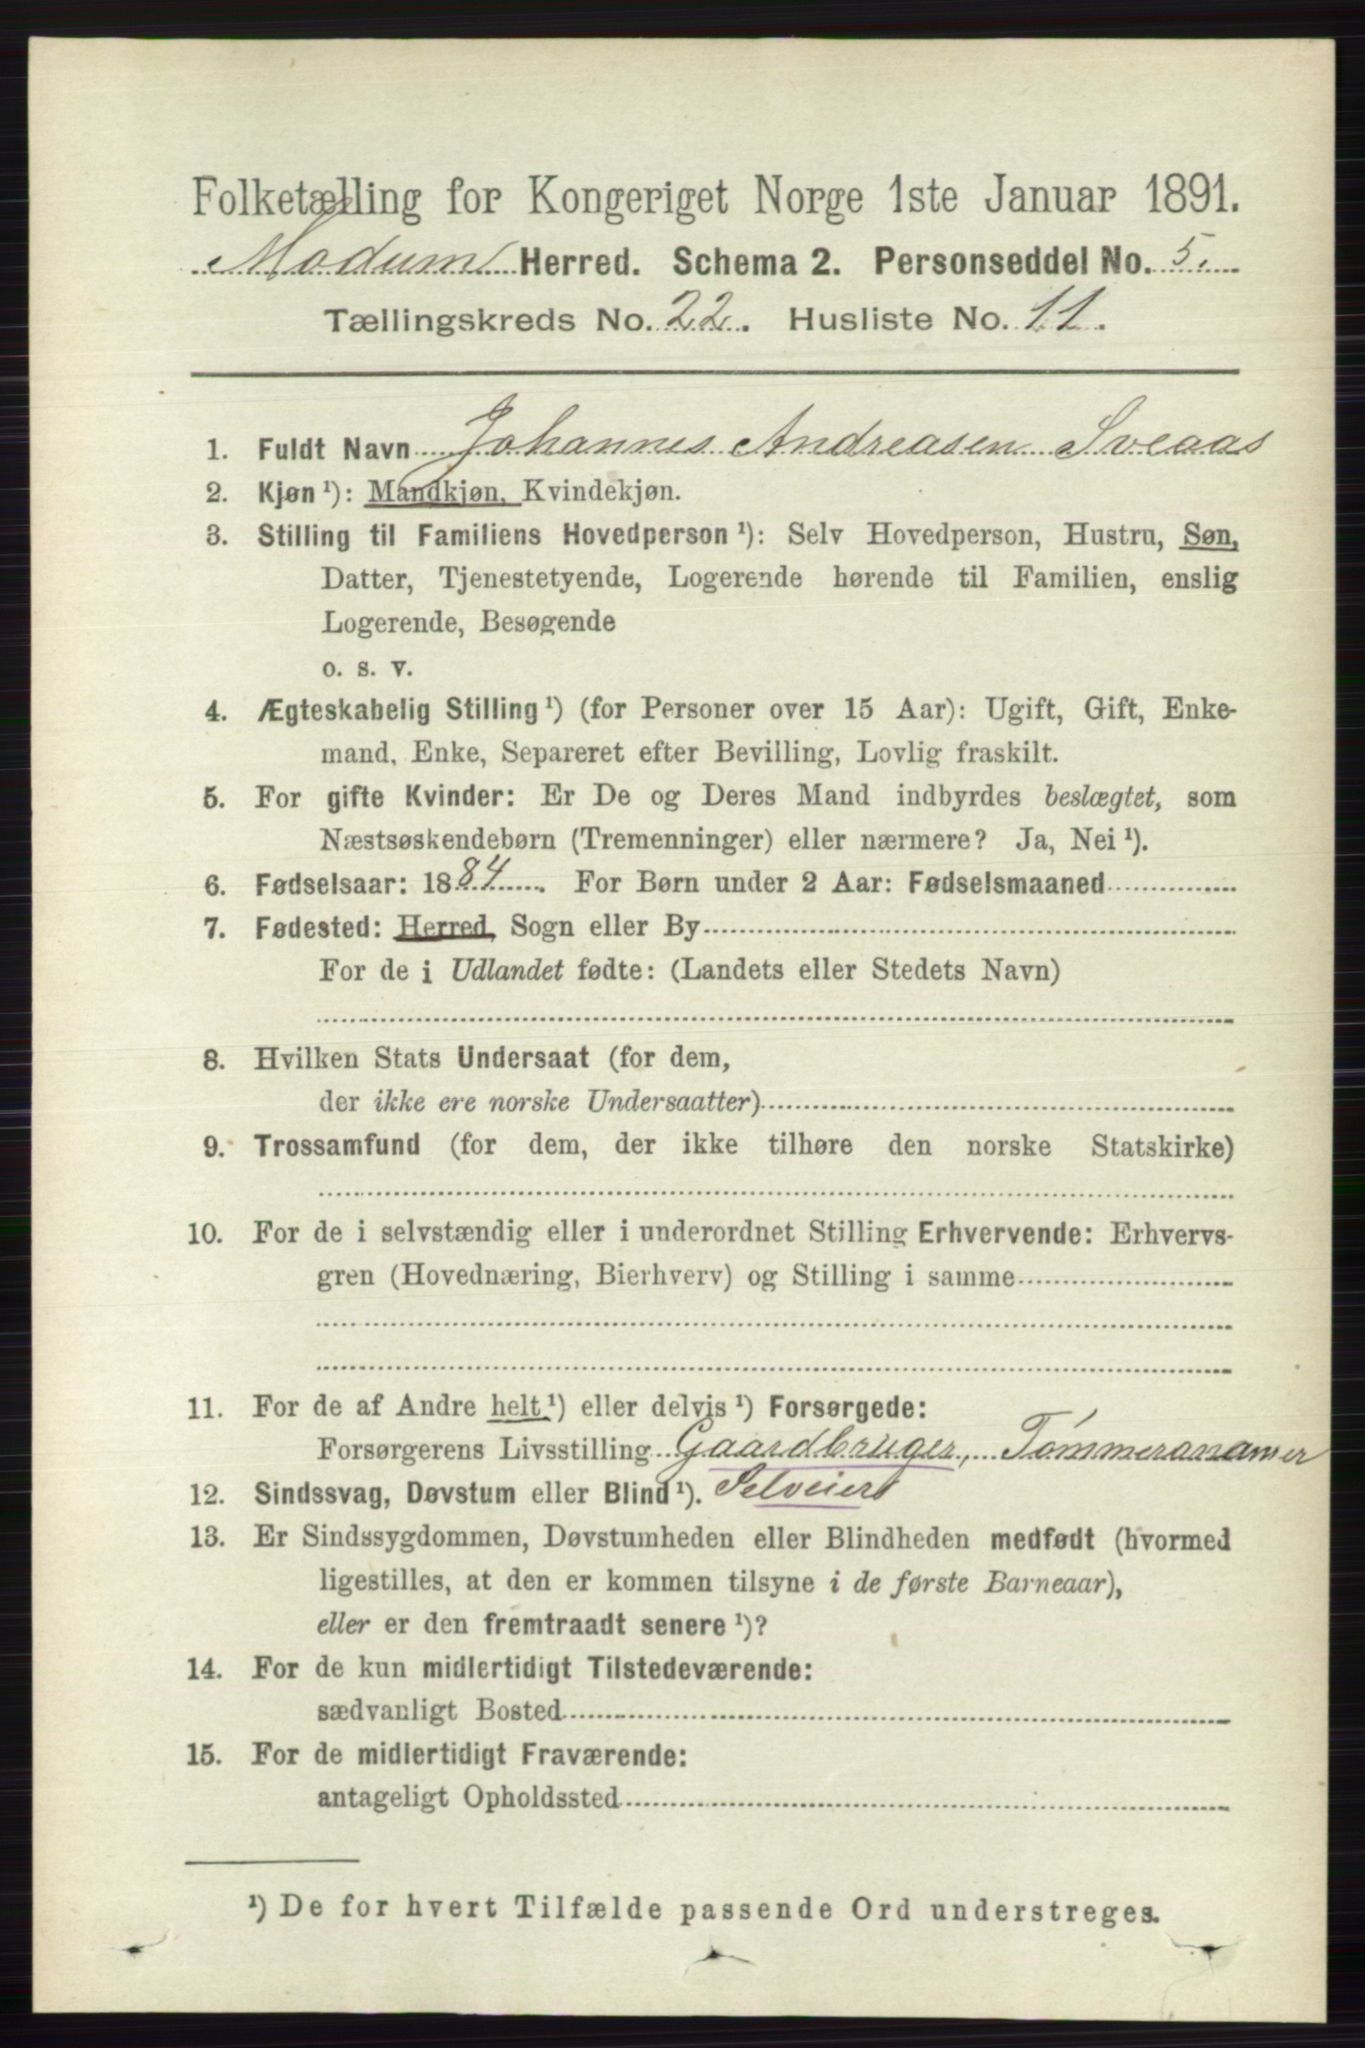 Folketælling for Kongeriget Norge 1ste Januar 1891.
Modum Herred. Schema 2. Personseddel No. 5.
Tællingskreds No. 22. Husliste No. 11.
1. Fuldt Navn Johannes Andreasen Sveaas
2. Kjøn ¹): Mandkjøn, Kvindekjøn.
3. Stilling til Familiens Hovedperson ¹): Selv Hovedperson, Hustru, Søn,
Datter, Tjenestetyende, Logerende hørende til Familien, enslig
Logerende, Besøgende
o. s. v.
4. Ægteskabelig Stilling ¹) (for Personer over 15 Aar): Ugift, Gift, Enke-
mand, Enke, Separeret efter Bevilling, Lovlig fraskilt.
5. For gifte Kvinder: Er De og Deres Mand indbyrdes beslægtet, som
Næstsøskendebørn (Tremenninger) eller nærmere? Ja, Nei ¹).
6. Fødselsaar: 1884. For Børn under 2 Aar: Fødselsmaaned
7. Fødested: Herred, Sogn eller By
For de i Udlandet fødte: (Landets eller Stedets Navn)
8. Hvilken Stats Undersaat (for dem,
der ikke ere norske Undersaatter)
9. Trossamfund (for dem, der ikke tilhøre den norske Statskirke)
10. For de i selvstændig eller i underordnet Stilling Erhvervende: Erhvervs-
gren (Hovednæring, Bierhverv) og Stilling i samme
11. For de af Andre helt ¹) eller delvis ¹) Forsørgede:
Forsørgerens Livsstilling Gaardbruger, Tømmeranamer
12. Sindssvag, Døvstum eller Blind ¹). Selveier
13. Er Sindssygdommen, Døvstumheden eller Blindheden medfødt (hvormed
ligestilles, at den er kommen tilsyne i de første Barneaar),
eller er den fremtraadt senere ¹)?
14. For de kun midlertidigt Tilstedeværende:
sædvanligt Bosted
15. For de midlertidigt Fraværende:
antageligt Opholdssted
¹) De for hvert Tilfælde passende Ord understreges.